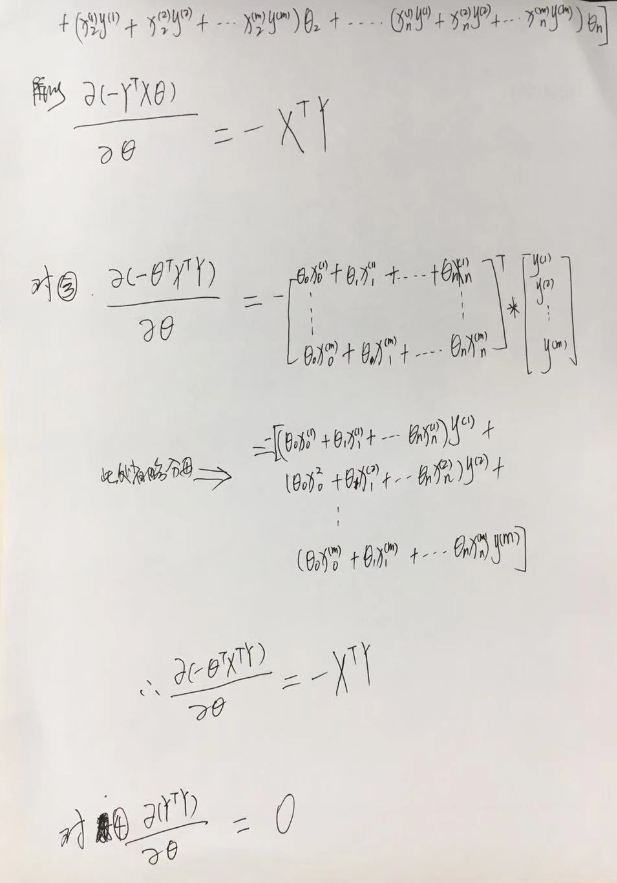 + (x₂⁽¹⁾y⁽¹⁾ + x₂⁽²⁾y⁽²⁾ + ⋯ x₂⁽ᵐ⁾y⁽ᵐ⁾)θ₂ + ⋯⋅ (xₙ⁽¹⁾y⁽¹⁾ + xₙ⁽²⁾y⁽²⁾ + ⋯ xₙ⁽ᵐ⁾y⁽ᵐ⁾)θₙ]
所以 ∂(-YᵀXθ)
∂θ
= - XᵀY
对③. ∂(-θᵀXᵀY)
∂θ
= -[θ₀x₀⁽¹⁾ + θ₁x₁⁽¹⁾ + ⋯ + θₙxₙ⁽¹⁾
⋮ ⋮
θ₀x₀⁽ᵐ⁾ + θ₁x₁⁽ᵐ⁾ + ⋯⋅ θₙxₙ⁽ᵐ⁾]ᵀ * [y⁽¹⁾
y⁽²⁾
⋮
y⁽ᵐ⁾]
= -[(θ₀x₀⁽¹⁾ + θ₁x₁⁽¹⁾ + ⋯ θₙxₙ⁽¹⁾)y⁽¹⁾ +
此处省略分母 ⇒ (θ₀x₀² + θ₁x₁⁽²⁾ + ⋯ θₙxₙ⁽²⁾)y⁽²⁾ +
⋮
(θ₀x₀⁽ᵐ⁾ + θ₁x₁⁽ᵐ⁾ + ⋯ θₙxₙ⁽ᵐ⁾)y⁽ᵐ⁾]
∴ ∂(-θᵀXᵀY)
∂θ
= - XᵀY
对④ ∂(YᵀY)
∂θ
= 0